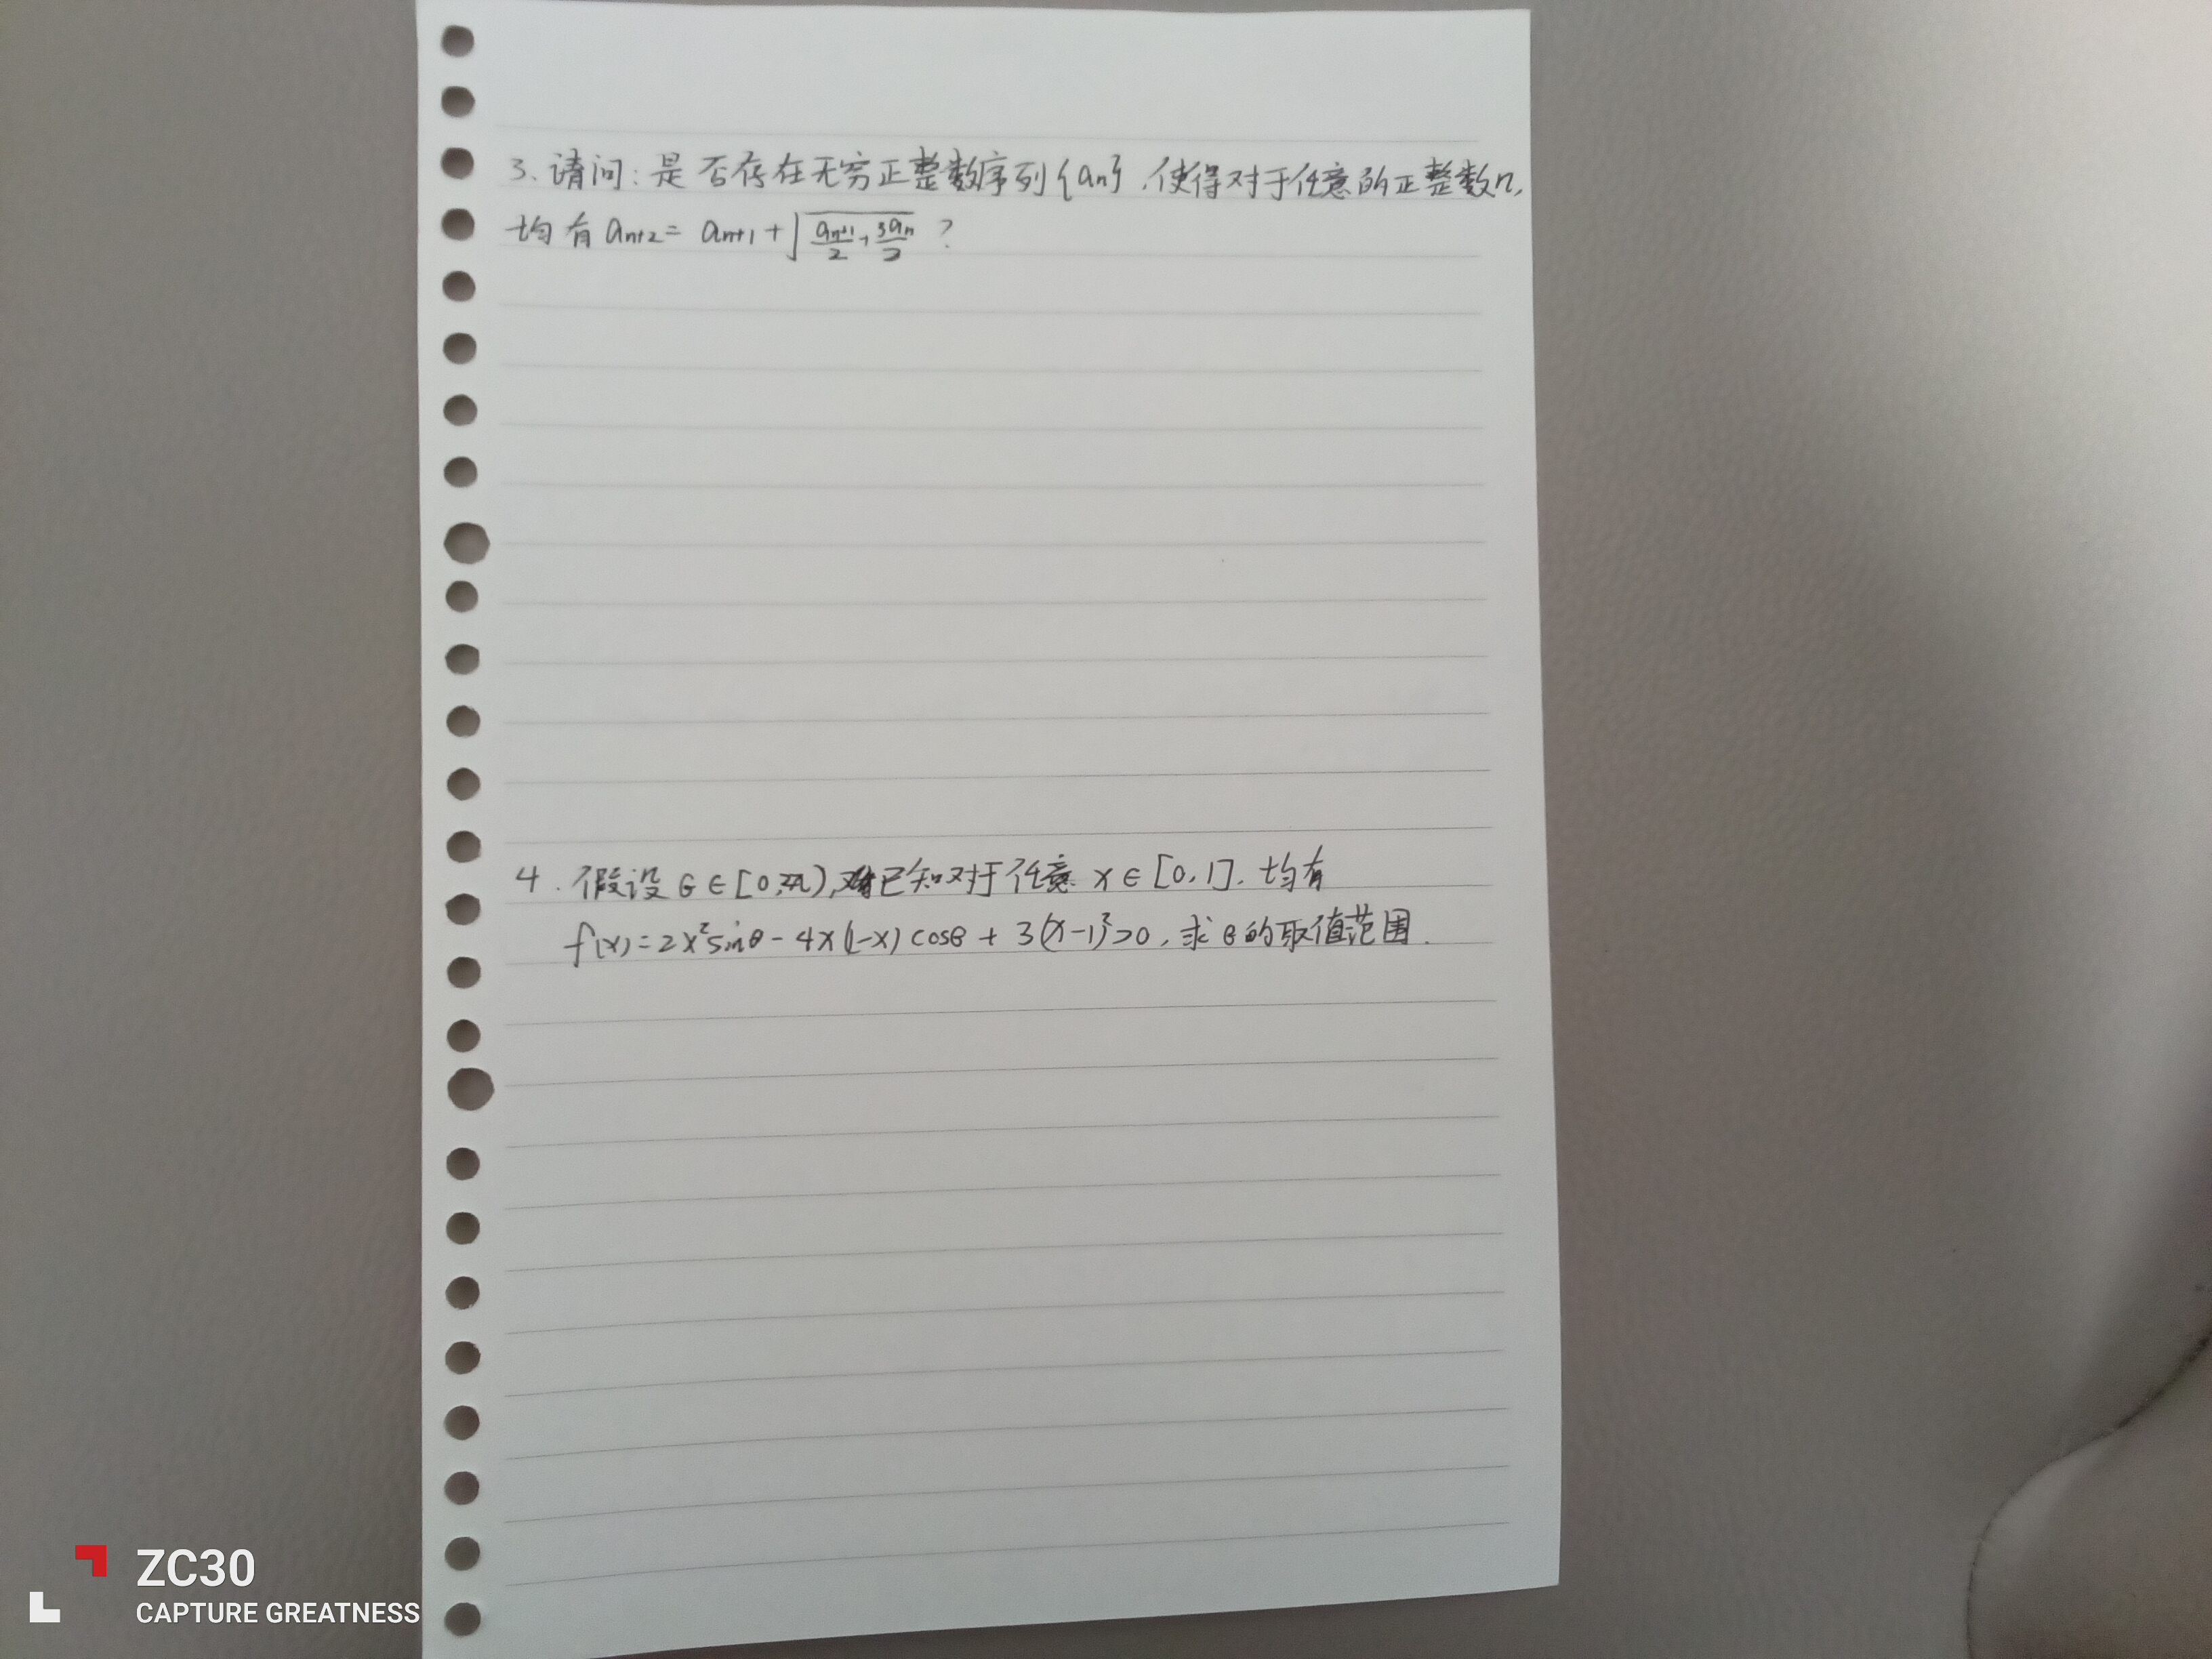 3、请问：是否存在无穷正整数序列{an}，使得对于任意的正整数n，
均有 an+2 = an+1 + √(an+1/2 + 3an/2) ？
4. 假设 θ∈[0,2π), 已知对于任意 x∈[0,1]，均有
f(x)=2x²sinθ-4x(1-x)cosθ+3(x-1)²>0，求θ的取值范围.
ZC30
CAPTURE GREATNESS